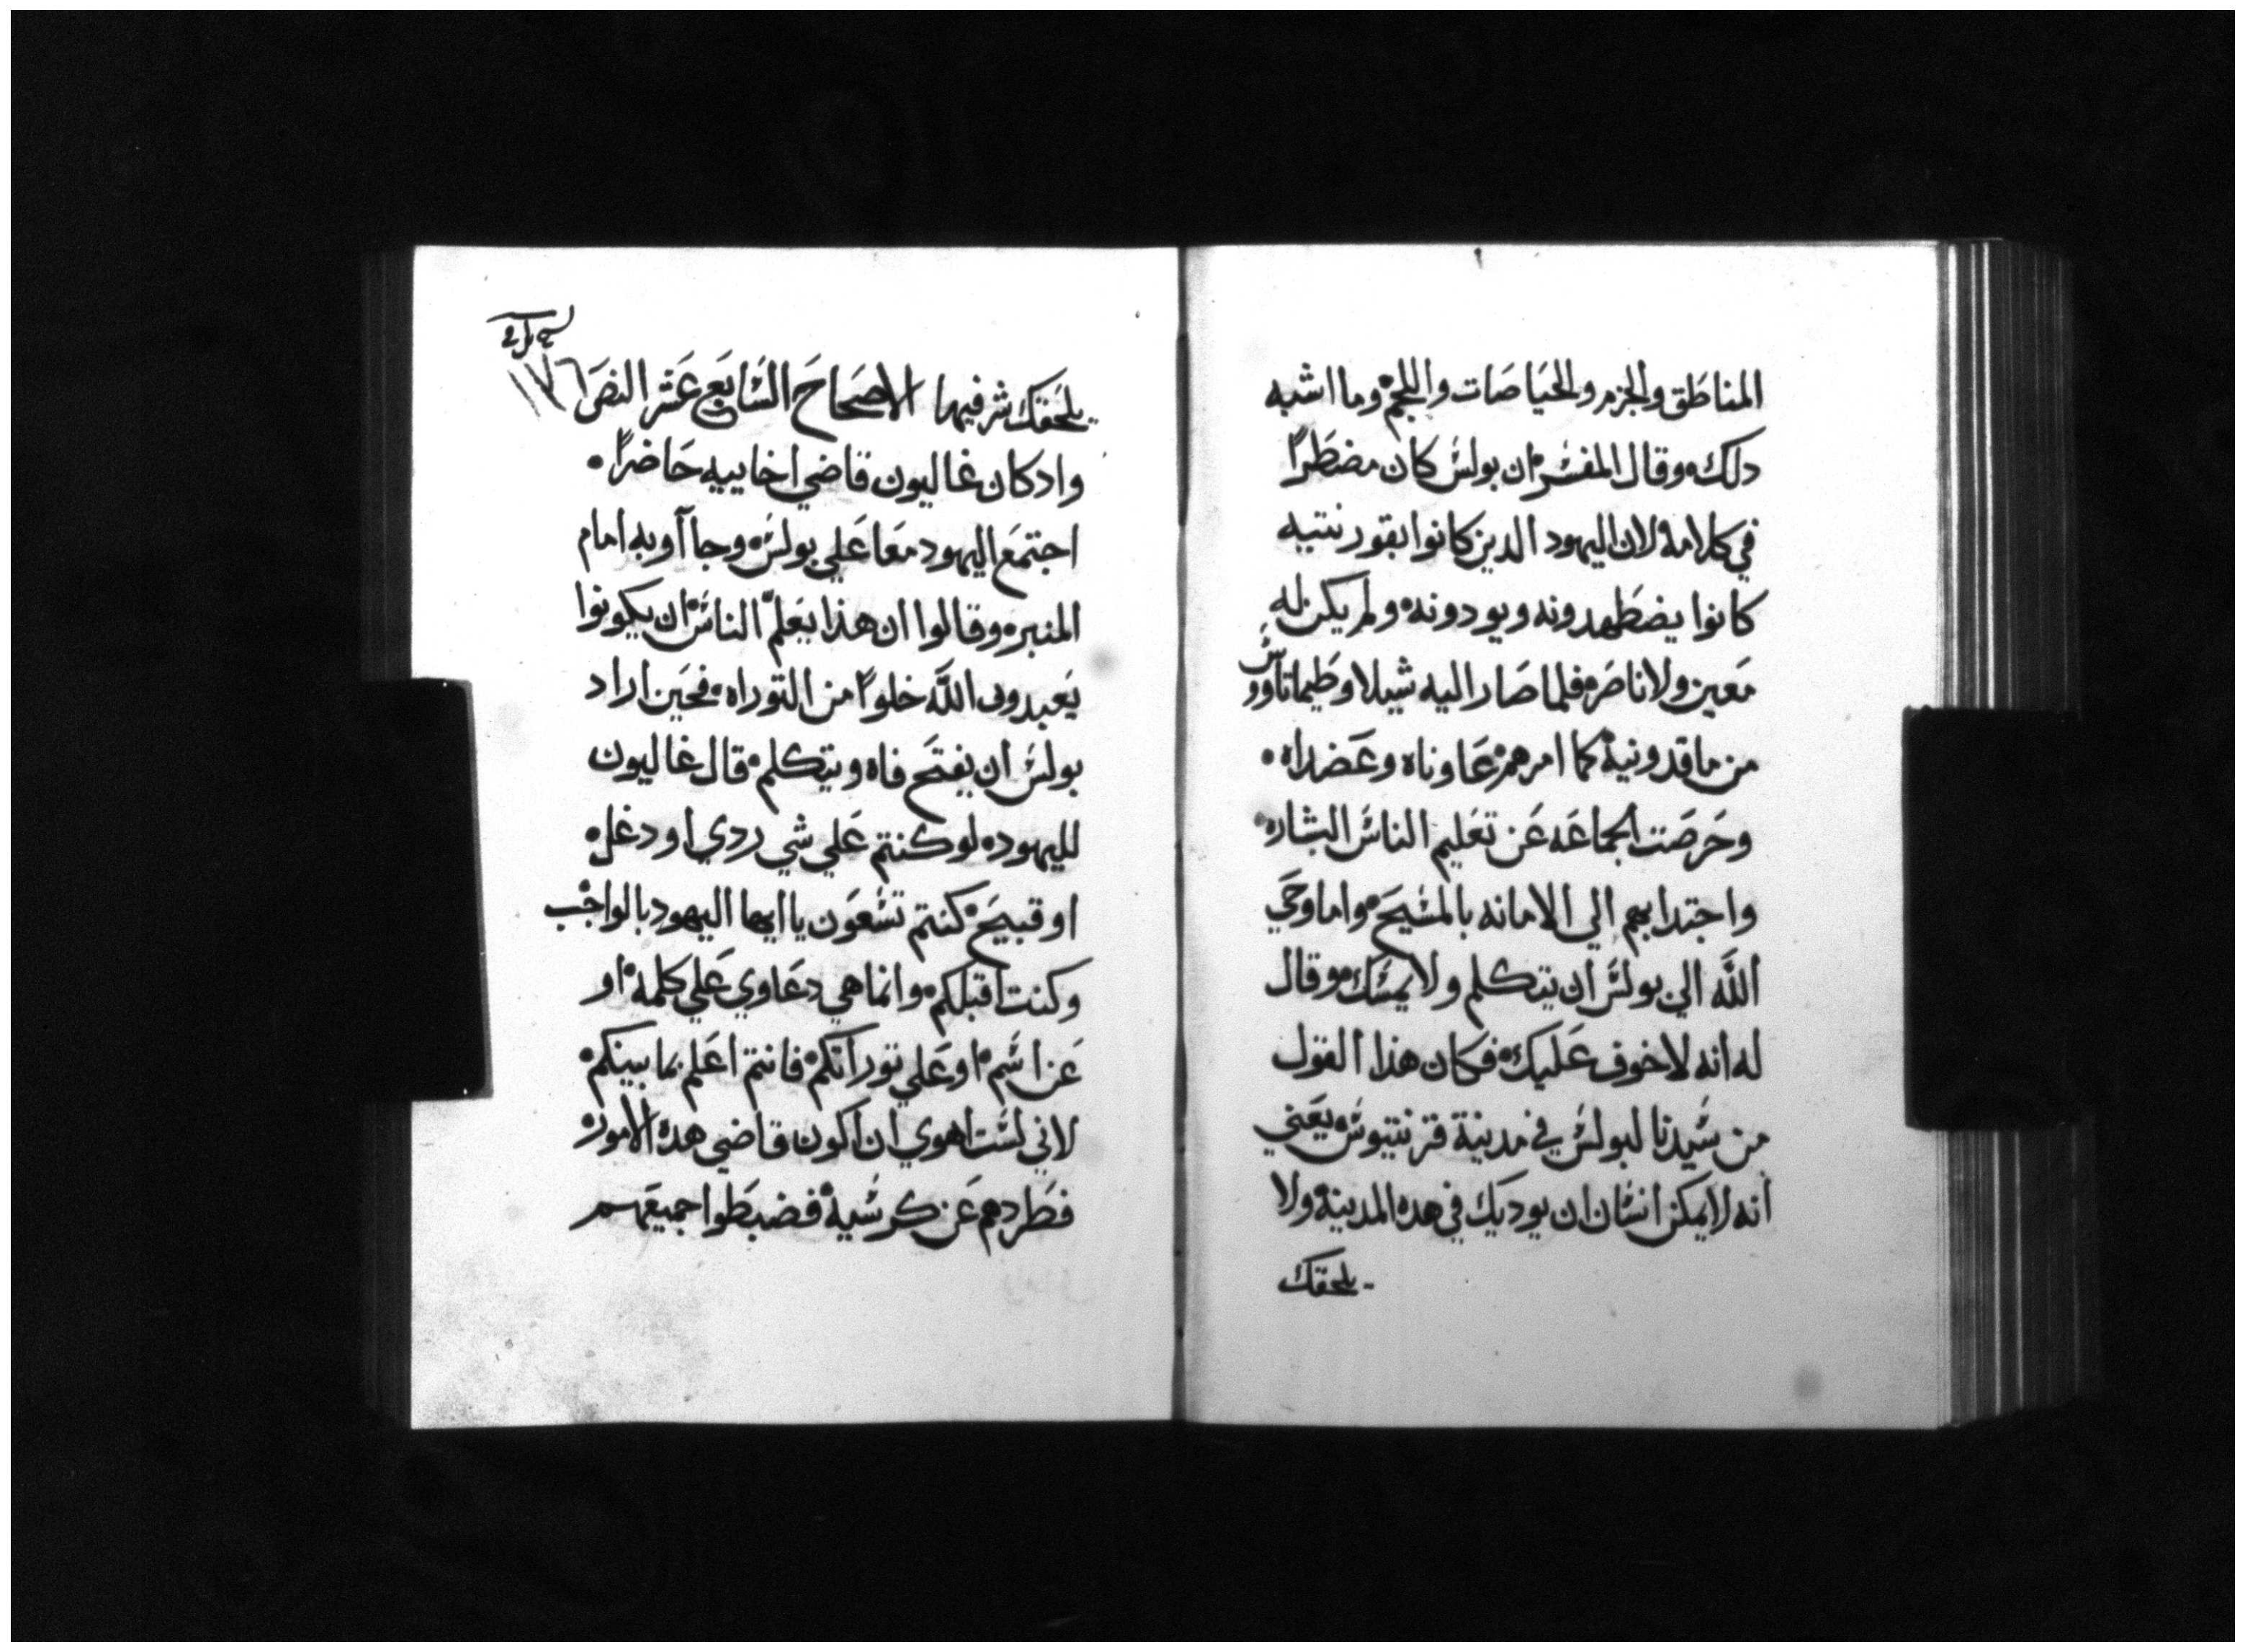 المناطق والجزم والحياصات واللجم وما اشبه
دلك وقال المفسر ان بولس كان مضطراً
في كلامه لان اليهود الدين كانوا بقورنتيه
كانوا يضطهدونه ويودونه ولم يكن له
معين ولا ناصر فلما صار اليه شيلا وطيماتاووس
من ماقدونية كما امرهم عاوناه وعضداه
وحرصت الجماعه عن تعليم الناس البشاره
واجتدابهم الي الامانه بالمسيح واما وحي
الله الي بولس ان يتكلم ولا يمسك وقال
له انه لا خوف عليك فكان هذا القول
من سيدنا لبولس في مدينة قرنتيوس يعني
انه لا يمكن انسان ان يوديك في هده المدينة ولا
يلحقك
١٧٦
يلحقك شر فيها الاصحاح السابع عشر النص
واد كان غاليون قاضي اخاييه حاضراً
اجتمع اليهود معا علي بولس وجاآوبه امام
المنبر وقالوا ان هذا يعلم الناس ان يكونوا
يعبدون الله خلواً من التوراه فحين اراد
بولس ان يفتح فاه ويتكلم قال غاليون
لليهود لو كنتم علي شي ردي او دغل
او قبيح كنتم تسعون يا ايها اليهود بالواجب
وكنت اقبلكم وانما هي دعاوي علي كلمه او
عن اسم او علي توراتكم فانتم اعلم بما بينكم
لاني لست اهوي ان اكون قاضي هده الامور
فطردهم عن كرسيه فضبطوا جميعهم